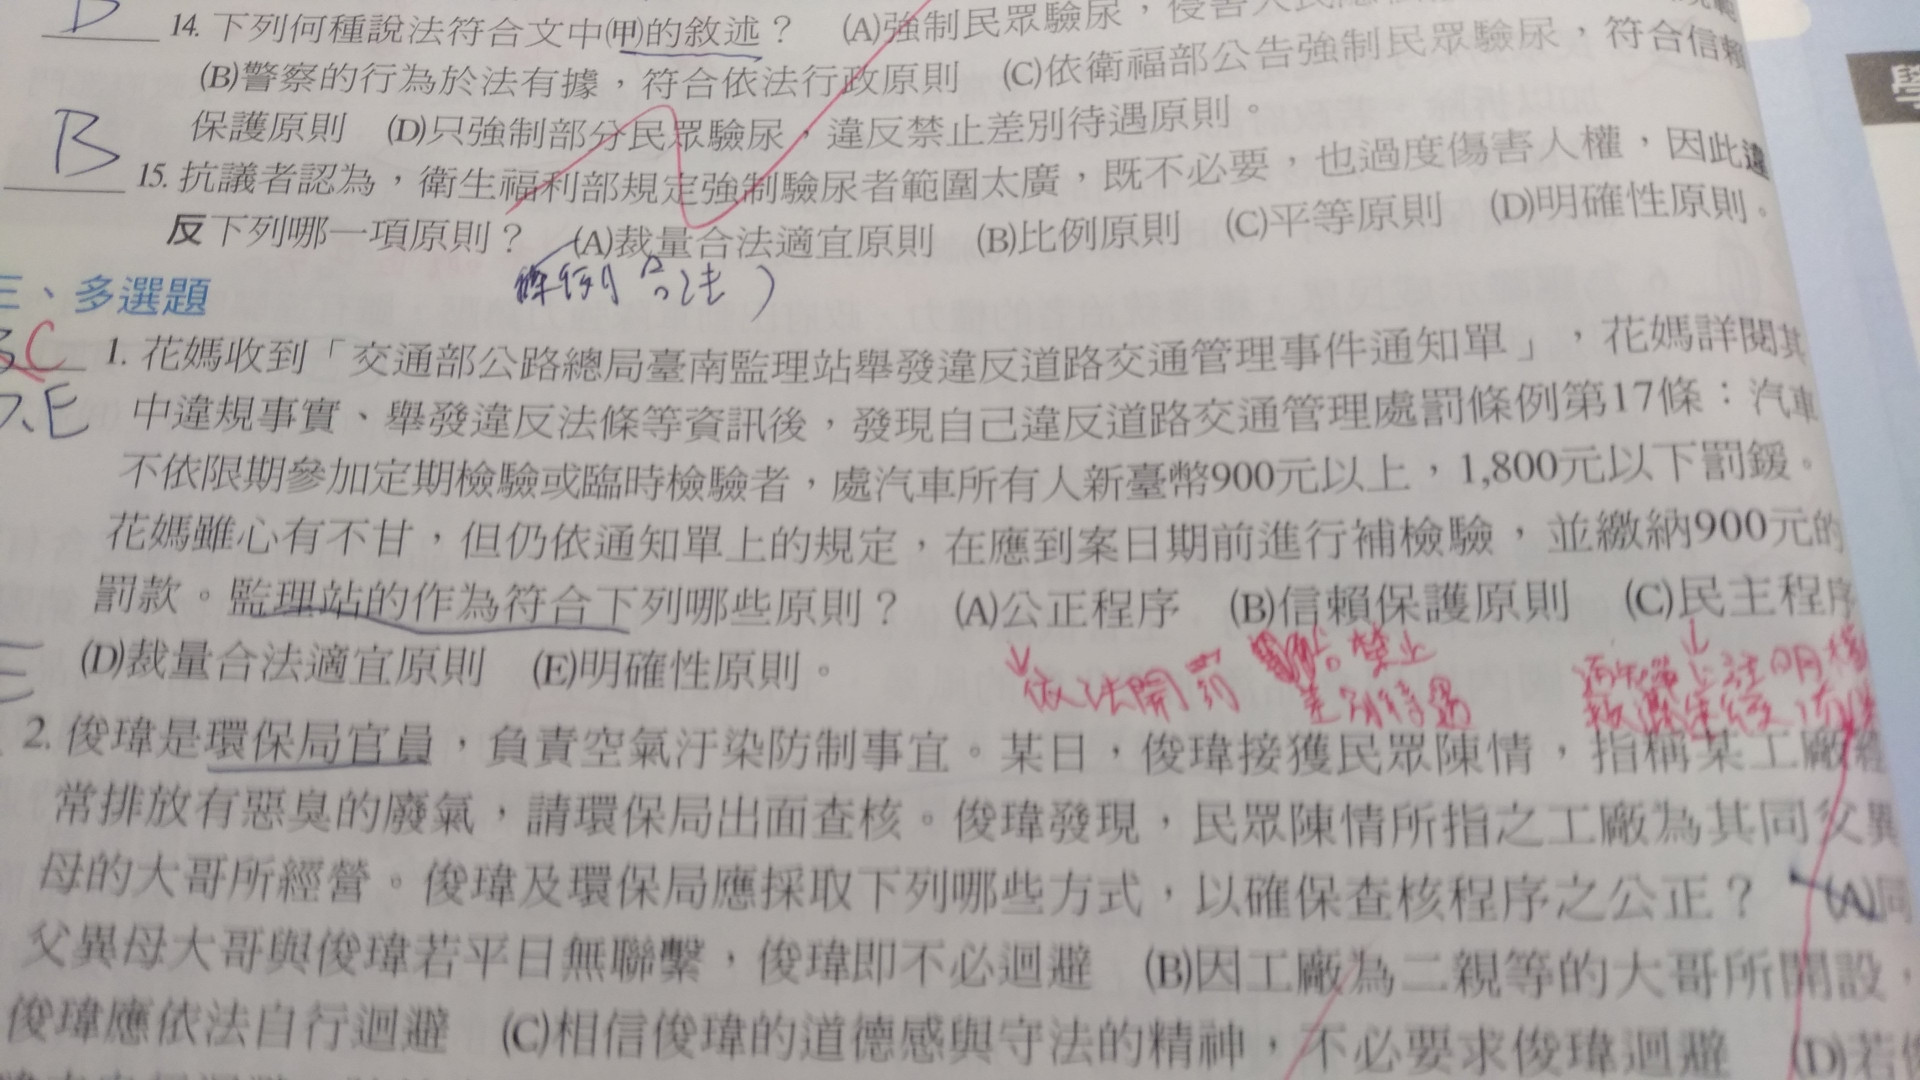 D 14. 下列何種說法符合文中(甲)的敘述？ (A)強制民眾驗尿，侵害人民
(B)警察的行為於法有據，符合依法行政原則 (C)依衛福部公告強制民眾驗尿，符合信賴
保護原則 (D)只強制部分民眾驗尿，違反禁止差別待遇原則。
B 15. 抗議者認為，衛生福利部規定強制驗尿者範圍太廣，既不必要，也過度傷害人權，因此違
反下列哪一項原則？ (A)裁量合法適宜原則 (B)比例原則 (C)平等原則 (D)明確性原則。
合法
三、多選題
C 1. 花媽收到「交通部公路總局臺南監理站舉發違反道路交通管理事件通知單」，花媽詳閱其
E 中違規事實、舉發違反法條等資訊後，發現自己違反道路交通管理處罰條例第17條：汽車
不依限期參加定期檢驗或臨時檢驗者，處汽車所有人新臺幣900元以上，1,800元以下罰鍰。
花媽雖心有不甘，但仍依通知單上的規定，在應到案日期前進行補檢驗，並繳納900元的
罰款。監理站的作為符合下列哪些原則？ (A)公正程序 (B)信賴保護原則 (C)民主程序
(D)裁量合法適宜原則 (E)明確性原則。
依法開罰 禁止
差別待遇
2. 俊瑋是環保局官員，負責空氣汙染防制事宜。某日，俊瑋接獲民眾陳情，指稱某工廠經
常排放有惡臭的廢氣，請環保局出面查核。俊瑋發現，民眾陳情所指之工廠為其同父異
母的大哥所經營。俊瑋及環保局應採取下列哪些方式，以確保查核程序之公正？ (A)同
父異母大哥與俊瑋若平日無聯繫，俊瑋即不必迴避 (B)因工廠為二親等的大哥所開設，
俊瑋應依法自行迴避 (C)相信俊瑋的道德感與守法的精神，不必要求俊瑋迴避 (D)若